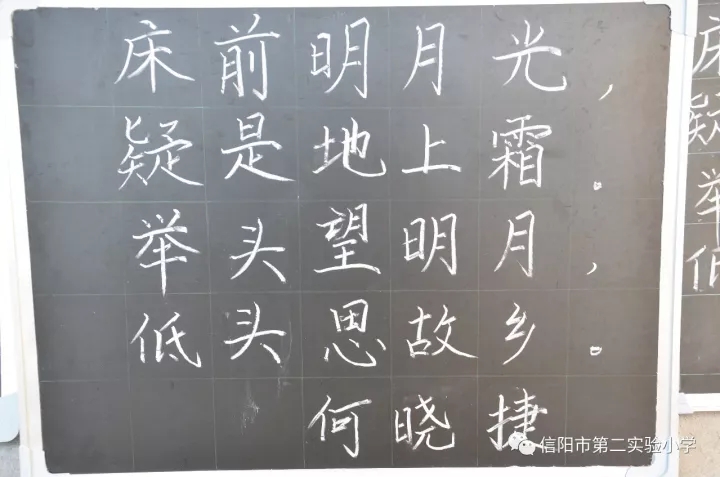 床前明月光，
疑是地上霜。
举头望明月，
低头思故乡。
何晓捷
信阳市第二实验小学